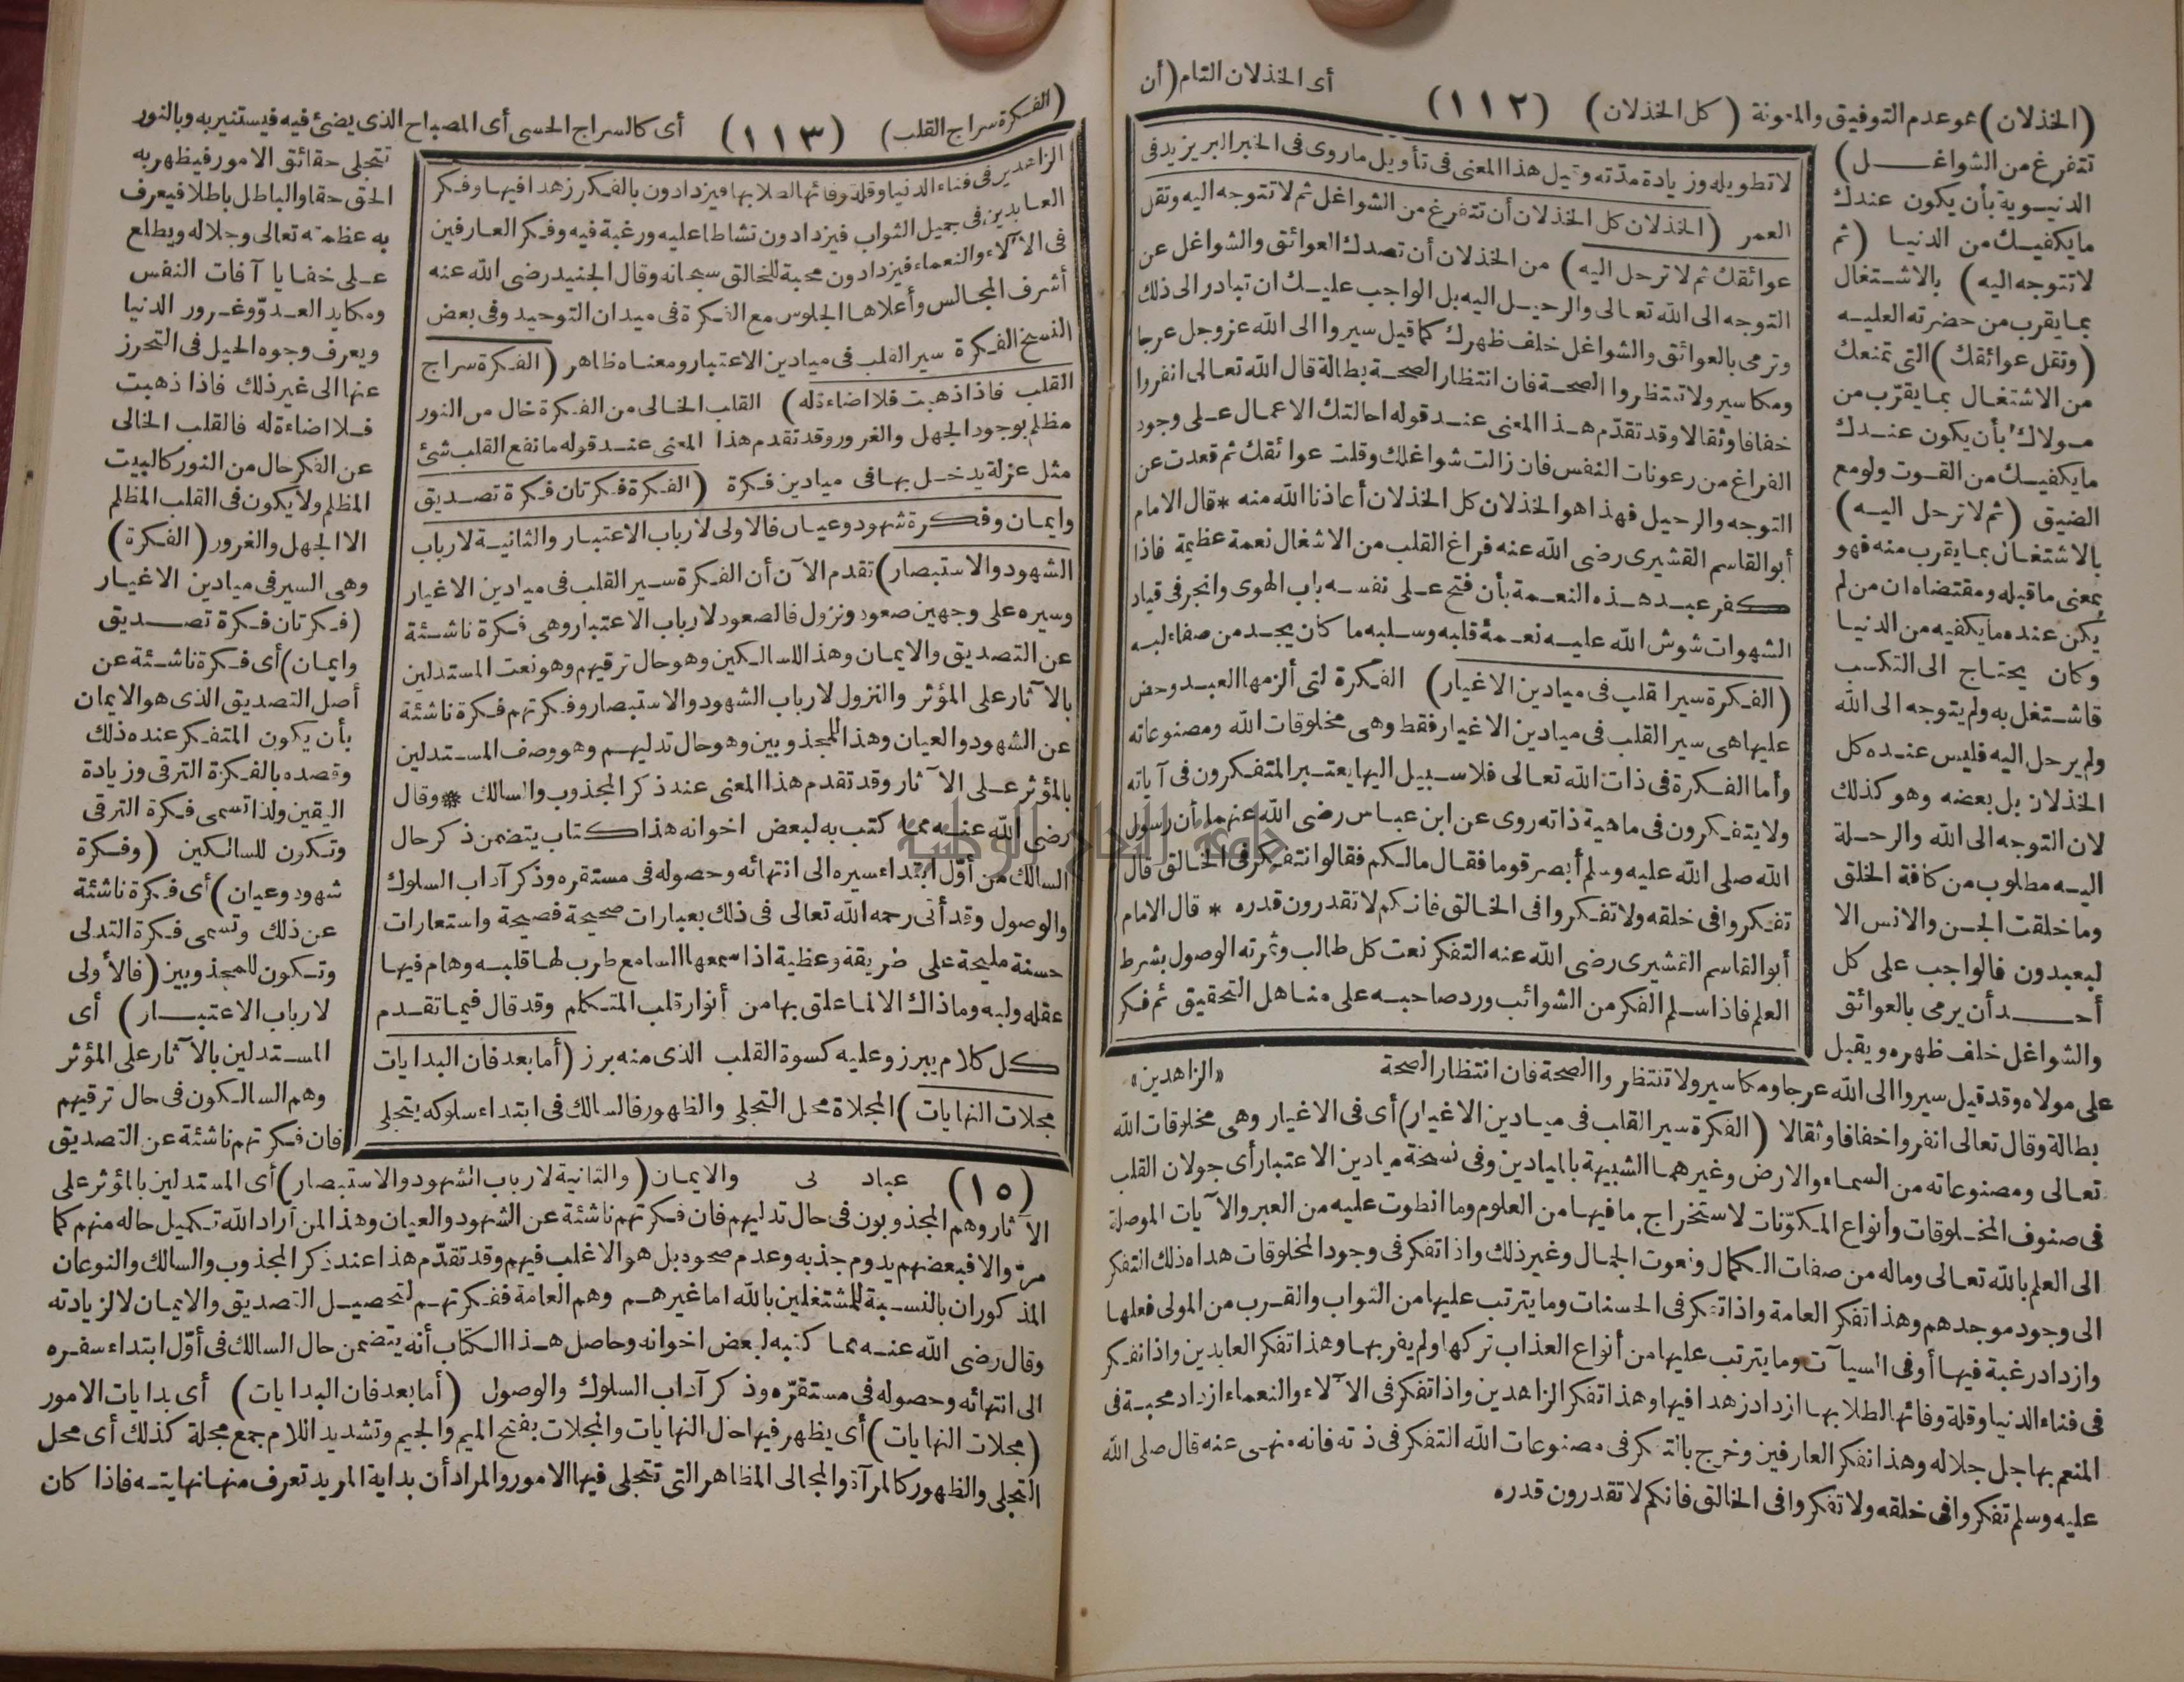 (الخذلان) هو عدم التوفيق والمعونة (كل الخذلان) (١١٢) أى الخذلان التام (أن
تتفرغ من الشواغل)
الدنيوية بأن يكون عندك
ما يكفيك من الدنيا (ثم
لا تتوجه اليه) بالاشتغال
بما يقرب من حضرته العليه
(وتقل عوائقك) التى تمنعك
من الاشتغال بما يقرّب من
مولاك بأن يكون عندك
ما يكفيك من القوت ولو مع
الضيق (ثم لا ترحل اليه)
بالاشتغال بما يقرب منه فهو
بمعنى ما قبله ومقتضاه ان من لم
يكن عنده ما يكفيه من الدنيا
وكان يحتاج الى التكسب
فاشتغل به ولم يتوجه الى الله
ولم يرحل اليه فليس عنده كل
الخذلان بل بعضه وهو كذلك
لان التوجه الى الله والرحلة
اليه مطلوب من كافة الخلق
وما خلقت الجن والانس الا
ليعبدون فالواجب على كل
أحد أن يرمى بالعوائق
والشواغل خلف ظهره ويقبل
لا تطويله وزيادة مدّته وقيل هذا المعنى فى تأويل ما روى فى الخبر البر يزيد فى
العمر (الخذلان كل الخذلان أن تتفرغ من الشواغل ثم لا تتوجه اليه وتقل
عوائقك ثم لا ترحل اليه) من الخذلان أن تصدك العوائق والشواغل عن
التوجه الى الله تعالى والرحيل اليه بل الواجب عليك ان تبادر الى ذلك
وترمى بالعوائق والشواغل خلف ظهرك كما قيل سيروا الى الله عز وجل عرجا
ومكاسير ولا تنتظروا الصحة فان انتظار الصحة بطالة قال الله تعالى انفروا
خفافا وثقالا وقد تقدّم هذا المعنى عند قوله احالتك الاعمال على وجود
الفراغ من رعونات النفس فان زالت شواغلك وقلت عوائقك ثم قعدت عن
التوجه والرحيل فهذا هو الخذلان كل الخذلان أعاذنا الله منه * قال الامام
أبو القاسم القشيرى رضى الله عنه فراغ القلب من الاشغال نعمة عظيمة فاذا
كفر عبد هذه النعمة بأن فتح على نفسه باب الهوى وانجر فى قياد
الشهوات شوش الله عليه نعمة قلبه وسلبه ما كان يجد من صفاء لبه
(الفكرة سير القلب فى ميادين الاغيار) الفكرة لتى ألزمها العبد وحض
عليها هى سير القلب فى ميادين الاغيار فقط وهى مخلوقات الله ومصنوعاته
وأما الفكرة فى ذات الله تعالى فلا سبيل اليها يعتبر المتفكرون فى آياته
ولا يتفكرون فى ماهية ذاته روى عن ابن عباس رضى الله عنهما أن رسول
الله صلى الله عليه وسلم أبصر قوما فقال مالكم فقالوا نتفكر فى الخالق قال
تفكروا فى خلقه ولا تفكروا فى الخالق فانكم لا تقدرون قدره * قال الامام
أبو القاسم القشيرى رضى الله عنه التفكر نعت كل طالب وثمرته الوصول بشرط
العلم فاذا سلم الفكر من الشوائب ورد صاحبه على مناهل التحقيق ثم فكر
«الزاهدين»
على مولاه وقد قيل سيروا الى الله عرجا ومكاسير ولا تنتظروا الصحة فان انتظار الصحة
بطالة وقال تعالى انفروا خفافا وثقالا (الفكرة سير القلب فى ميادين الاغيار) أى فى الاغيار وهى مخلوقات الله
تعالى ومصنوعاته من السماء والارض وغيرهما الشبيهة بالميادين وفى نسخة ميادين الاعتبار أى جولان القلب
فى صنوف المخلوقات وأنواع المكوّنات لاستخراج ما فيها من العلوم وما انطوت عليه من العبر والآيات الموصلة
الى العلم بالله تعالى وماله من صفات الكمال ونعوت الجمال وغير ذلك واذا تفكر فى وجود المخلوقات هداه ذلك التفكر
الى وجود موجدهم وهذا تفكر العامة واذا تفكر فى الحسنات وما يترتب عليها من الثواب والقرب من المولى فعلها
وازداد رغبة فيها أو فى السيآت وما يترتب عليها من أنواع العذاب تركها ولم يقربها وهذا تفكر العابدين واذا تفكر
فى فناء الدنيا وقلة وفائها لطلابها ازداد زهدا فيها وهذا تفكر الزاهدين واذا تفكر فى الآلاء والنعماء ازداد محبة فى
المنعم بها جل جلاله وهذا تفكر العارفين وخرج بالتفكر فى مصنوعات الله التفكر فى ذاته فانه منهى عنه قال صلى الله
عليه وسلم تفكروا فى خلقه ولا تفكروا فى الخالق فانكم لا تقدرون قدره
(الفكرة سراج القلب) (١١٣) أى كالسراج الحسى أى المصباح الذى يضئ فيه فيستنير به وبالنور
الزاهدين فى فناء الدنيا وقلة وفائها لطلابها فيزدادون بالفكر زهدا فيها وفكر
العابدين فى جميل الثواب فيزدادون نشاطا عليه ورغبة فيه وفكر العارفين
فى الآلاء والنعماء فيزدادون محبة للخالق سبحانه وقال الجنيد رضى الله عنه
أشرف المجالس وأعلاها الجلوس مع الفكرة فى ميدان التوحيد وفى بعض
النسخ الفكرة سير القلب فى ميادين الاعتبار ومعناه ظاهر (الفكرة سراج
القلب فاذا ذهبت فلا اضاءة له) القلب الخالى من الفكرة خال من النور
مظلم بوجود الجهل والغرور وقد تقدم هذا المعنى عند قوله ما نفع القلب شئ
مثل عزلة يدخل بها فى ميادين فكرة (الفكرة فكرتان فكرة تصديق
وايمان وفكرة شهود وعيان فالاولى لارباب الاعتبار والثانية لارباب
الشهود والاستبصار) تقدم الآن أن الفكرة سير القلب فى ميادين الاغيار
وسيره على وجهين صعود ونزول فالصعود لارباب الاعتبار وهى فكرة ناشئة
عن التصديق والايمان وهذا للسالكين وهو حال ترقيهم وهو نعت المستدلين
بالآثار على المؤثر والنزول لارباب الشهود والاستبصار وفكرتهم فكرة ناشئة
عن الشهود والعيان وهذا للمجذوبين وهو حال تدليهم وهو وصف المستدلين
بالمؤثر على الآثار وقد تقدم هذا المعنى عند ذكر المجذوب والسالك * وقال
رضى الله عنه مما كتب به لبعض اخوانه هذا كتاب يتضمن ذكر حال
السالك من أوّل ابتداء سيره الى انتهائه وحصوله فى مستقره وذكر آداب السلوك
والوصول وقد أتى رحمه الله تعالى فى ذلك بعبارات صحيحة فصيحة واستعارات
حسنة مليحة على طريقة وعظية اذا سمعها السامع طرب لها قلبه وهام فيها
عقله ولبه وما ذاك الا لما علق بها من أنوار قلب المتكلم وقد قال فيما تقدم
كل كلام يبرز وعليه كسوة القلب الذى منه برز (أما بعد فان البدايات
مجلات النهايات) المجلاة محل التجلى والظهور فالسالك فى ابتداء سلوكه يتجلى
تتجلى حقائق الامور فيظهر به
الحق حقا والباطل باطلا فيعرف
به عظمته تعالى وجلاله ويطلع
على خفايا آفات النفس
ومكايد العدوّ وغرور الدنيا
ويعرف وجوه الحيل فى التحرز
عنها الى غير ذلك فاذا ذهبت
فلا اضاءة له فالقلب الخالى
عن الفكر خال من النور كالبيت
المظلم ولا يكون فى القلب المظلم
الا الجهل والغرور (الفكرة)
وهى السير فى ميادين الاغيار
(فكرتان فكرة تصديق
وايمان) أى فكرة ناشئة عن
أصل التصديق الذى هو الايمان
بأن يكون المتفكر عنده ذلك
وقصده بالفكرة الترقى وزيادة
اليقين ولذا تسمى فكرة الترقى
وتكون للسالكين (وفكرة
شهود وعيان) أى فكرة ناشئة
عن ذلك وتسمى فكرة التدلى
وتكون للمجذوبين (فالأولى
لارباب الاعتبار) أى
المستدلين بالآثار على المؤثر
وهم السالكون فى حال ترقيهم
فان فكرتهم ناشئة عن التصديق
(١٥) عباد لى والايمان (والثانية لارباب الشهود والاستبصار) أى المستدلين بالمؤثر على
الآثار وهم المجذوبون فى حال تدليهم فان فكرتهم ناشئة عن الشهود والعيان وهذا لمن أراد الله تكميل حاله منهم كما
مرّ والا فبعضهم يدوم جذبه وعدم صحوه بل هو الاغلب فيهم وقد تقدّم هذا عند ذكر المجذوب والسالك والنوعان
المذكوران بالنسبة للمشتغلين بالله اما غيرهم وهم العامة ففكرتهم لتحصيل التصديق والايمان لا لزيادته
وقال رضى الله عنه مما كتبه لبعض اخوانه وحاصل هذا الكتاب أنه يتضمن حال السالك فى أوّل ابتداء سفره
الى انتهائه وحصوله فى مستقرّه وذكر آداب السلوك والوصول (أما بعد فان البدايات) أى بدايات الامور
(مجلات النهايات) أى يظهر فيها حال النهايات والمجلات بفتح الميم والجيم وتشديد اللام جمع مجلة كذلك أى محل
التجلى والظهور كالمرآة والمجالى المظاهر التى تتجلى فيها الامور والمراد أن بداية المريد تعرف منها نهايته فاذا كان
جامعة النجاح الوطنية